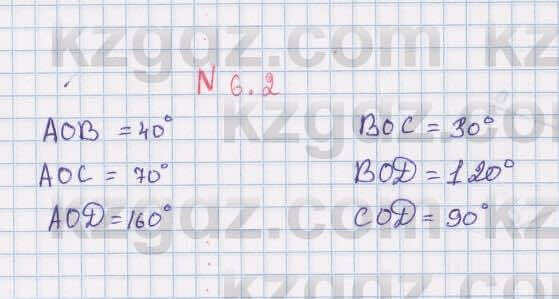 N 6.2
AOB = 40° BOC = 30°
AOC = 70° BOD = 120°
AOD = 160° COD = 90°
kzgdz.com
kzgdz.com
kzgdz.com
kzgdz.com